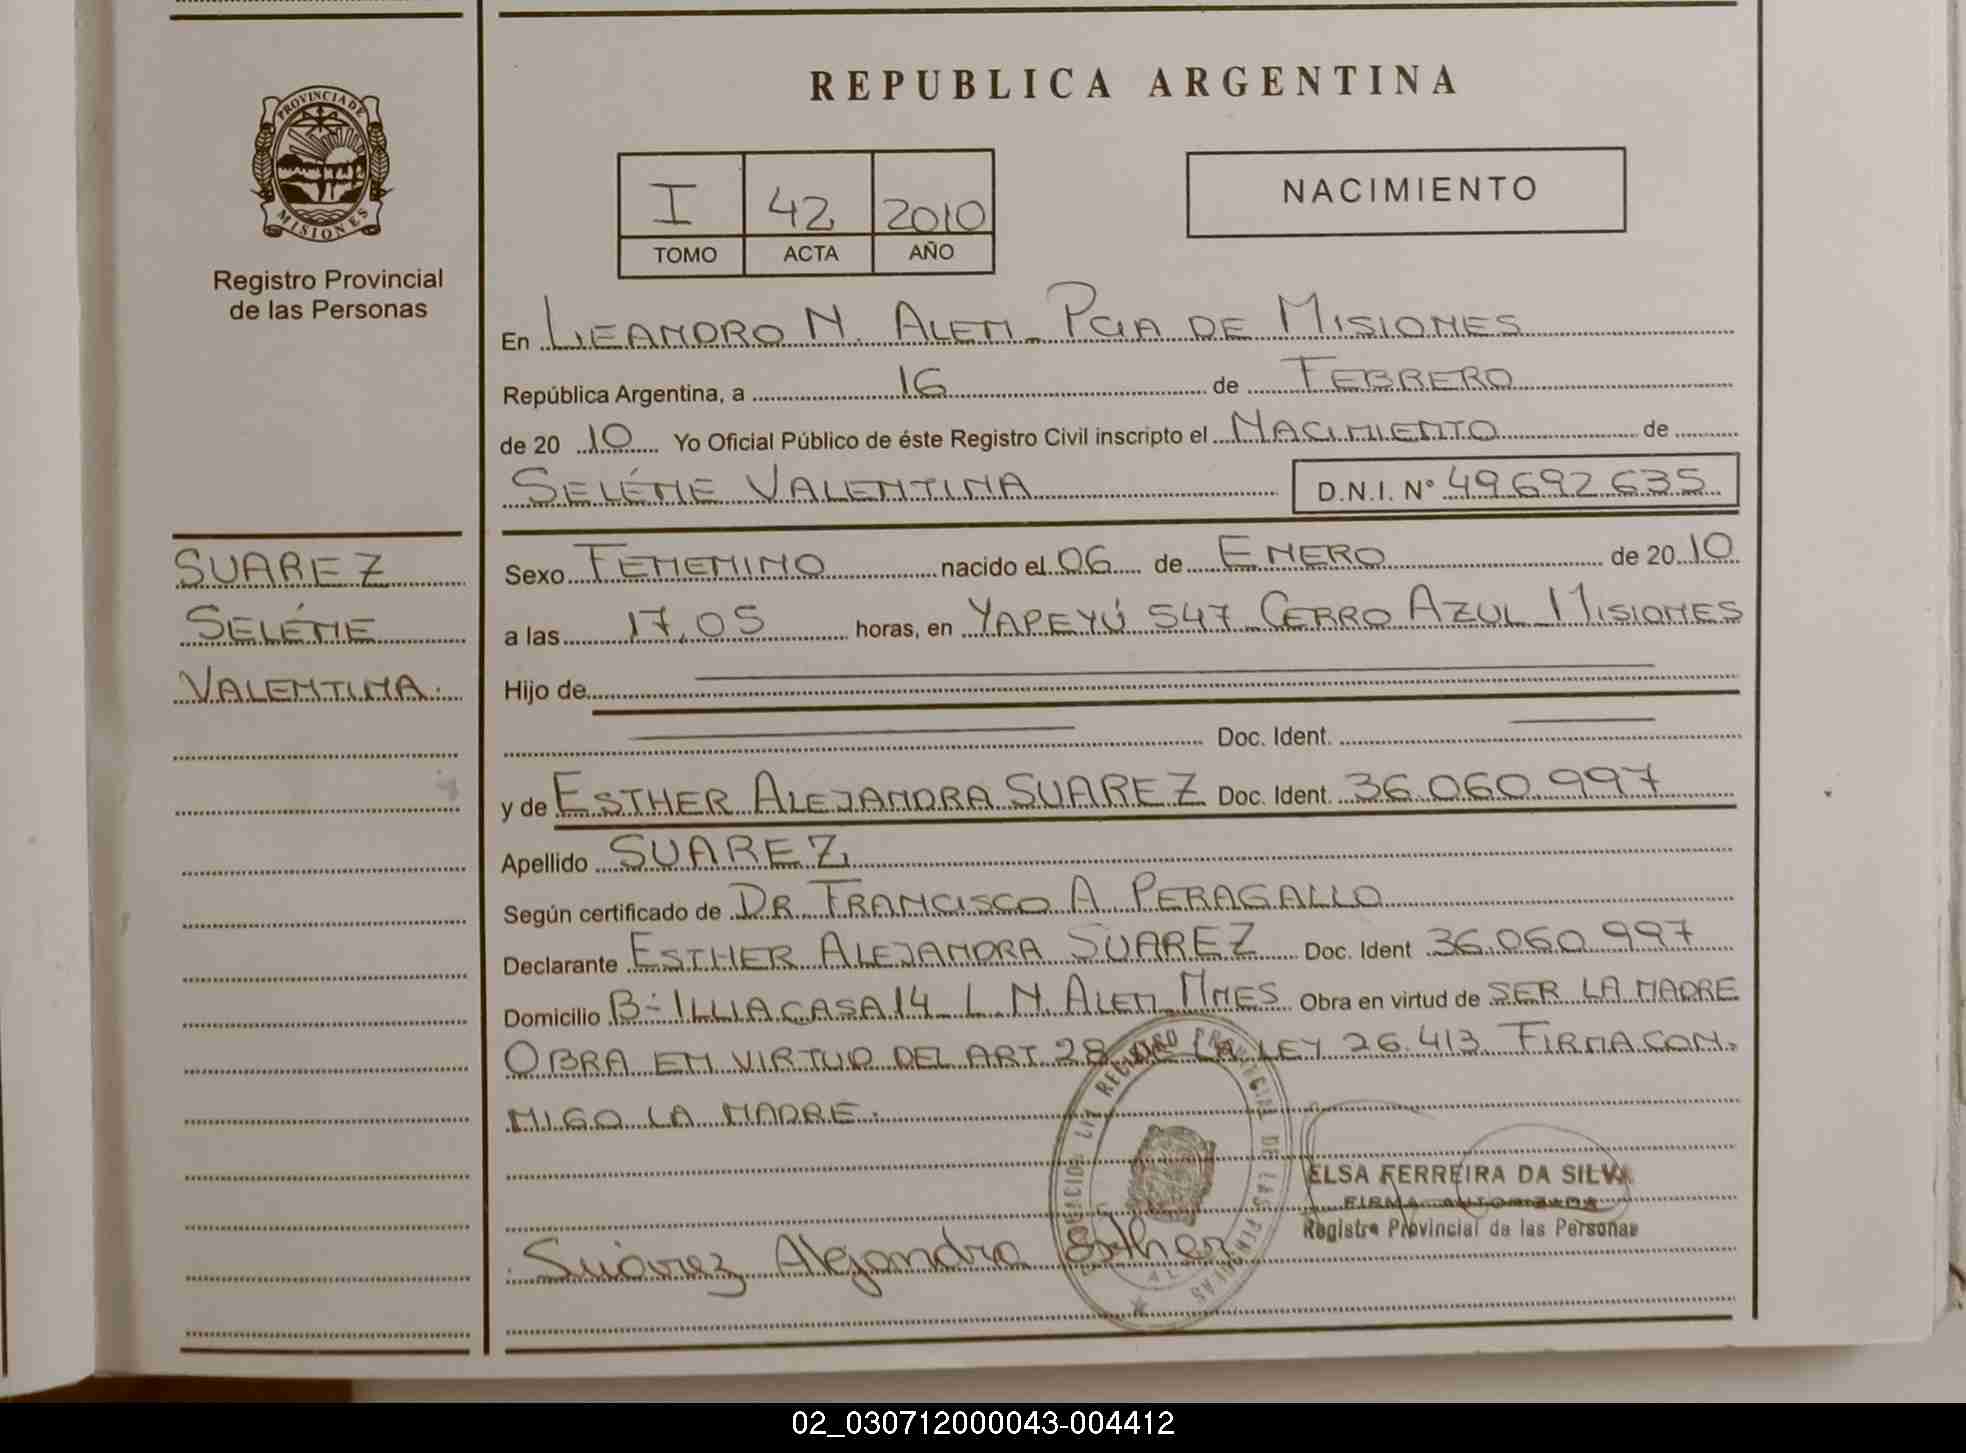 REPUBLICA ARGENTINA
PROVINCIA DE
MISIONES
Registro Provincial
de las Personas
I 42 2010
TOMO ACTA AÑO
NACIMIENTO
En LEANDRO N. ALEM - PCIA DE MISIONES
República Argentina, a 16 de FEBRERO
de 20 10 Yo Oficial Público de éste Registro Civil inscripto el NACIMIENTO de
SELÉNE VALENTINA D.N.I. N° 49.692.635
SUAREZ
SELÉNE
VALENTINA.
Sexo FEMENINO nacido el 06 de ENERO de 20 10
a las 17,05 horas, en YAPEYÚ 547 CERRO AZUL MISIONES
Hijo de
Doc. Ident.
y de ESTHER ALEJANDRA SUAREZ Doc. Ident. 36.060.997
Apellido SUAREZ
Según certificado de DR FRANCISCO A. PERAGALLO
Declarante ESTHER ALEJANDRA SUAREZ Doc. Ident 36.060.997
Domicilio B- ILLIA CASA 14 L.N. ALEM MNES Obra en virtud de SER LA MADRE
OBRA EN VIRTUD DEL ART. 28 DE LA LEY 26.413 FIRMA CON-
MIGO LA MADRE.
ELSA FERREIRA DA SILVA
FIRMA AUTORIZADA
Registro Provincial de las Personas
Suárez Alejandra Esther
02_030712000043-004412